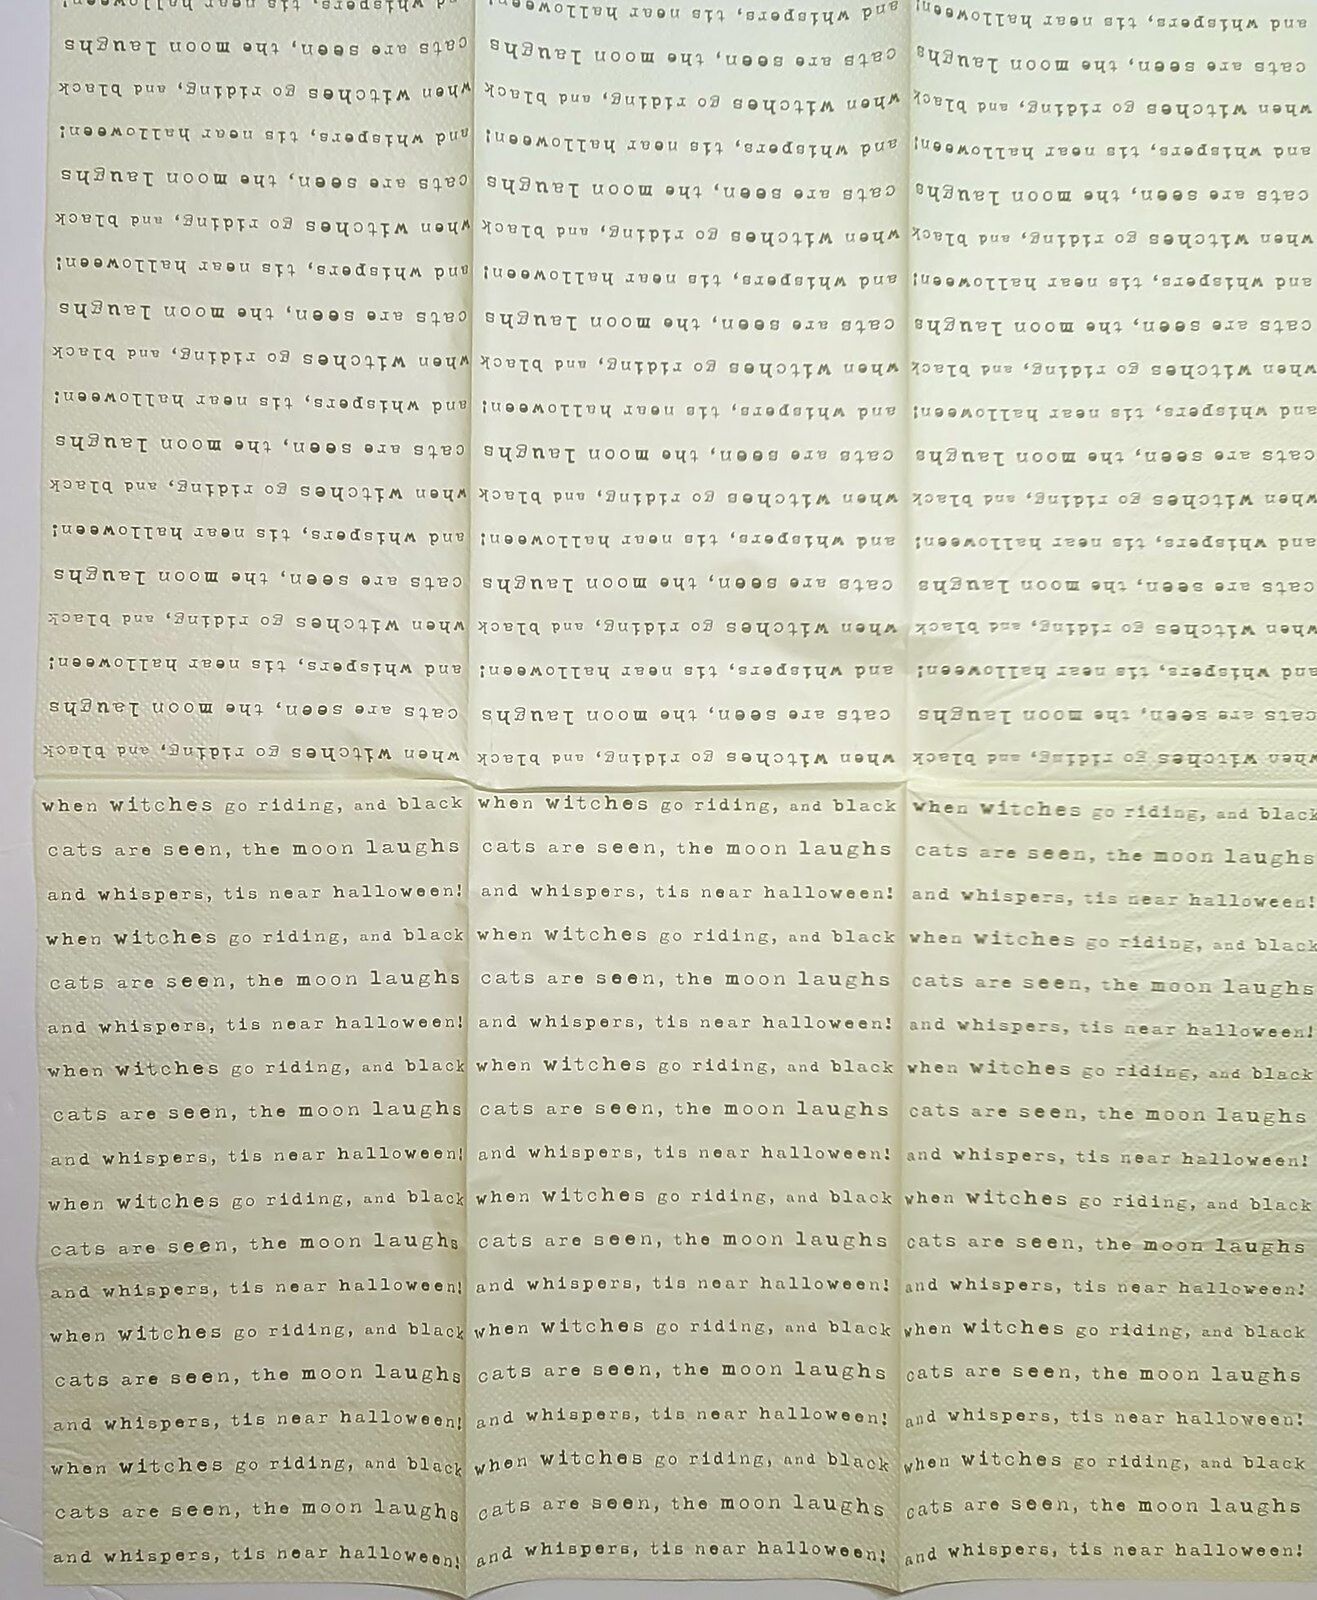 when witches go riding, and black when witches go riding, and black when witches go riding, and black
cats are seen, the moon laughs cats are seen, the moon laughs cats are seen, the moon laughs
and whispers, tis near halloween! and whispers, tis near halloween! and whispers, tis near halloween!
when witches go riding, and black when witches go riding, and black when witches go riding, and black
cats are seen, the moon laughs cats are seen, the moon laughs cats are seen, the moon laughs
and whispers, tis near halloween! and whispers, tis near halloween! and whispers, tis near halloween!
when witches go riding, and black when witches go riding, and black when witches go riding, and black
cats are seen, the moon laughs cats are seen, the moon laughs cats are seen, the moon laughs
and whispers, tis near halloween! and whispers, tis near halloween! and whispers, tis near halloween!
when witches go riding, and black when witches go riding, and black when witches go riding, and black
cats are seen, the moon laughs cats are seen, the moon laughs cats are seen, the moon laughs
and whispers, tis near halloween! and whispers, tis near halloween! and whispers, tis near halloween!
when witches go riding, and black when witches go riding, and black when witches go riding, and black
cats are seen, the moon laughs cats are seen, the moon laughs cats are seen, the moon laughs
and whispers, tis near halloween! and whispers, tis near halloween! and whispers, tis near halloween!
when witches go riding, and black when witches go riding, and black when witches go riding, and black
cats are seen, the moon laughs cats are seen, the moon laughs cats are seen, the moon laughs
and whispers, tis near halloween! and whispers, tis near halloween! and whispers, tis near halloween!
when witches go riding, and black when witches go riding, and black when witches go riding, and black
cats are seen, the moon laughs cats are seen, the moon laughs cats are seen, the moon laughs
and whispers, tis near halloween! and whispers, tis near halloween! and whispers, tis near halloween!
when witches go riding, and black when witches go riding, and black when witches go riding, and black
cats are seen, the moon laughs cats are seen, the moon laughs cats are seen, the moon laughs
and whispers, tis near halloween! and whispers, tis near halloween! and whispers, tis near halloween!
when witches go riding, and black when witches go riding, and black when witches go riding, and black
cats are seen, the moon laughs cats are seen, the moon laughs cats are seen, the moon laughs
and whispers, tis near halloween! and whispers, tis near halloween! and whispers, tis near halloween!
when witches go riding, and black when witches go riding, and black when witches go riding, and black
cats are seen, the moon laughs cats are seen, the moon laughs cats are seen, the moon laughs
and whispers, tis near halloween! and whispers, tis near halloween! and whispers, tis near halloween!
when witches go riding, and black when witches go riding, and black when witches go riding, and black
cats are seen, the moon laughs cats are seen, the moon laughs cats are seen, the moon laughs
and whispers, tis near halloween! and whispers, tis near halloween! and whispers, tis near halloween!
when witches go riding, and black when witches go riding, and black when witches go riding, and black
cats are seen, the moon laughs cats are seen, the moon laughs cats are seen, the moon laughs
and whispers, tis near halloween! and whispers, tis near halloween! and whispers, tis near halloween!